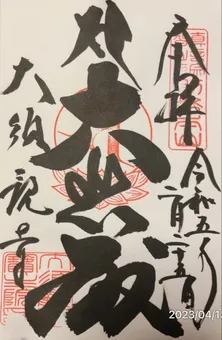 奉拝
令和五年
二月二十五日
大悲殿
大須観音
2023/04/1